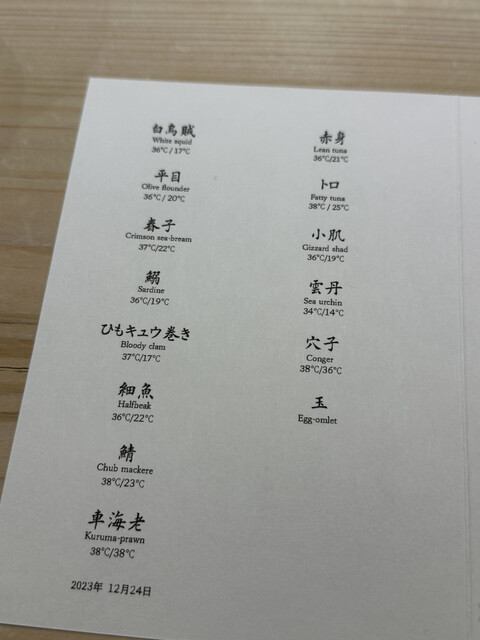 白烏賊
White squid
36℃/17℃
平目
Olive flounder
36℃/20℃
春子
Crimson sea-bream
37℃/22℃
鰯
Sardine
36℃/19℃
ひもキュウ巻き
Bloody clam
37℃/17℃
細魚
Halfbeak
36℃/22℃
鯖
Chub mackere
38℃/23℃
車海老
Kuruma-prawn
38℃/38℃
2023年 12月24日
赤身
Lean tuna
36℃/21℃
トロ
Fatty tuna
38℃/25℃
小肌
Gizzard shad
36℃/19℃
雲丹
Sea urchin
34℃/14℃
穴子
Conger
38℃/36℃
玉
Egg-omlet